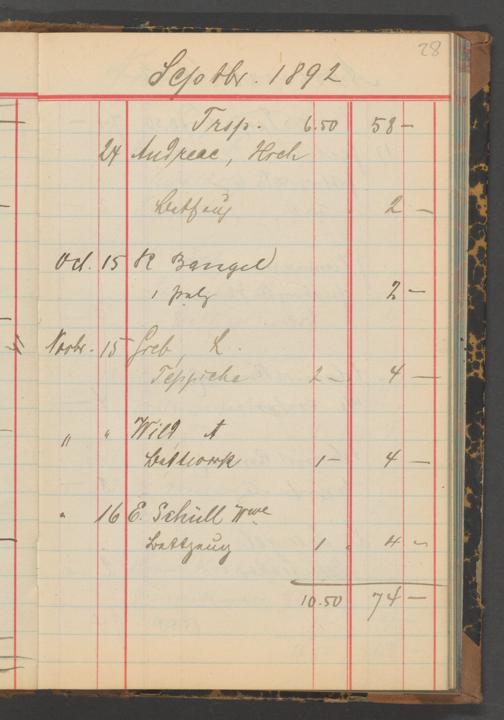 28
Septbr. 1892
Trsp. 6.50 58 —
24 Andreae, Hoch
Bettzeug 2 —
Oct. 15 K Bangel
1 Pelz 2 —
Novbr. 15 Greb, L.
Teppiche 2 — 4 —
" " Wild, A
Bettwerk 1 — 4 —
" 16 E. Schüll Wwe
Bettzeug 1 " 4 —
10.50 74 —